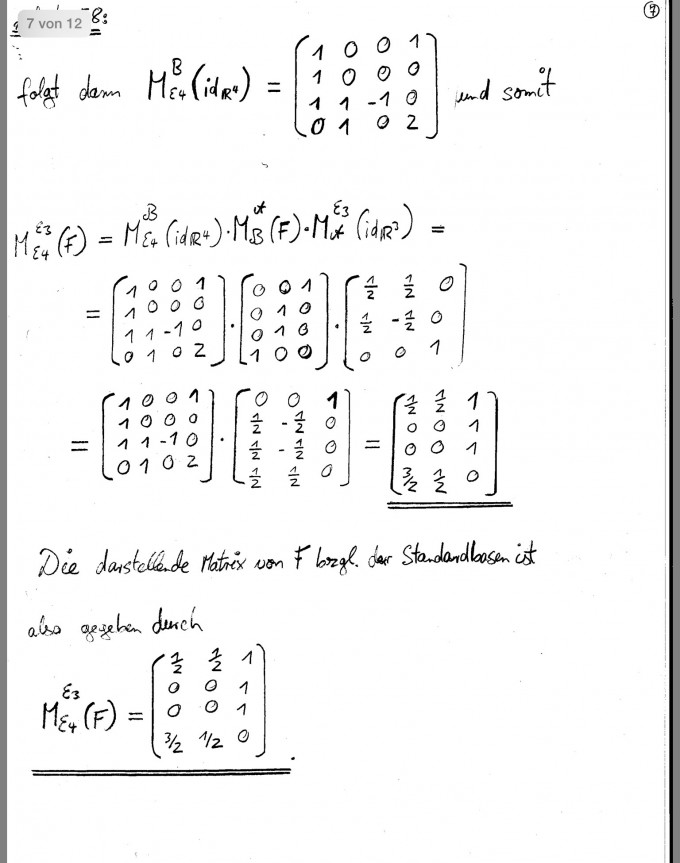 7 von 12
8:
⑦
folgt dann M_{ε4}^{B}(id_{ℝ⁴}) = (1 0 0 1; 1 0 0 0; 1 1 -1 0; 0 1 0 2) und somit
M_{ε4}^{ε3}(F) = M_{ε4}^{B}(id_{ℝ⁴}) · M_{B}^{𝒜}(F) · M_{𝒜}^{ε3}(id_{ℝ³}) =
= (1 0 0 1; 1 0 0 0; 1 1 -1 0; 0 1 0 2) · (0 0 1; 0 1 0; 0 1 0; 1 0 0) · (1/2 1/2 0; 1/2 -1/2 0; 0 0 1)
= (1 0 0 1; 1 0 0 0; 1 1 -1 0; 0 1 0 2) · (0 0 1; 1/2 -1/2 0; 1/2 -1/2 0; 1/2 1/2 0) = (1/2 1/2 1; 0 0 1; 0 0 1; 3/2 1/2 0)
Die darstellende Matrix von F bzgl. der Standardbasen ist
also gegeben durch
M_{ε4}^{ε3}(F) = (1/2 1/2 1; 0 0 1; 0 0 1; 3/2 1/2 0).